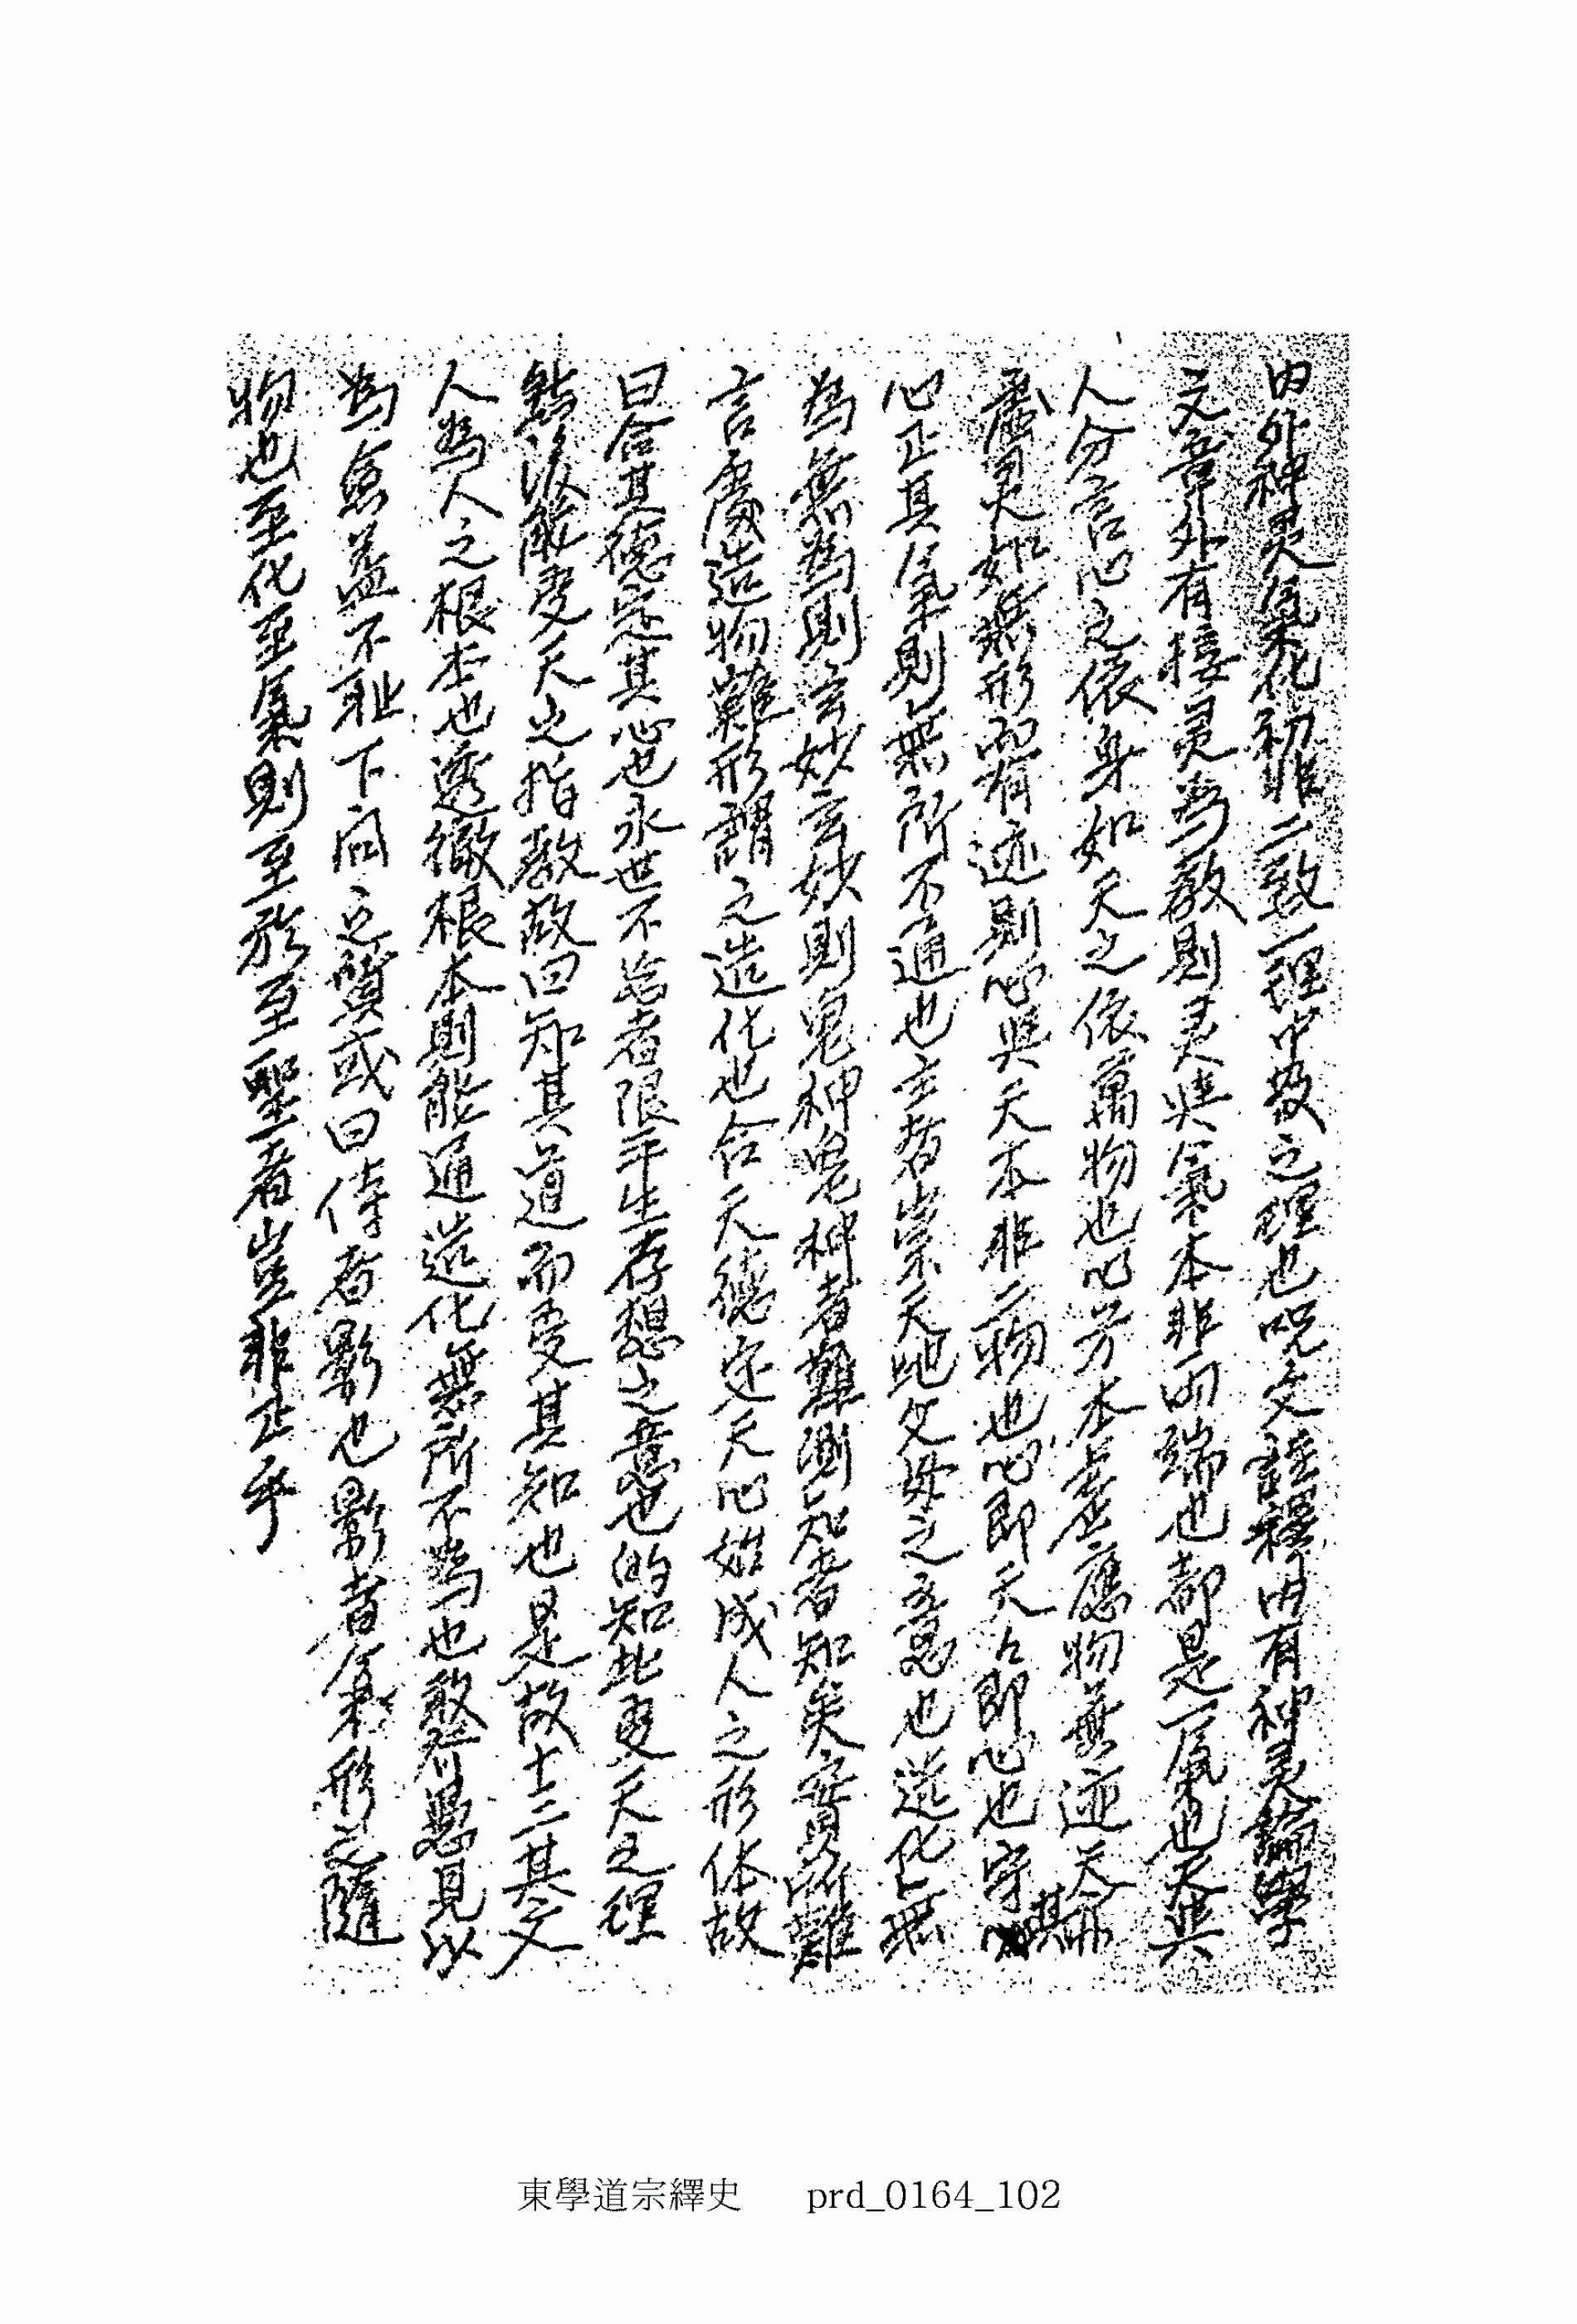 內外神灵氣化初非二致一理中散之理也呪文註釋內有神灵論學
文章外有接灵爲敎則灵與氣本非兩端也都是一氣也天與
人分言心之依身如天之依萬物也心兮本虛應物無迹天心
虛灵如無形而有迹則心與天本非二物也心即天天即心也守其
心正其氣則無所不通也主者崇天地父母之意也造化無
爲無爲則玄妙玄妙則鬼神鬼神者難測知者知矣實所難
言處造物難形謂之造化也合天德定天心始成人之形体故
曰合其德定其心也永世不忘者限平生存想之意也的知此更天之理
然後能受天之指敎故曰知其道而受其知也是故十三其文
人爲人之根本也透徹根本則能通造化無所不爲也敢將愚見以
爲 盖不耻下向之質或曰侍者影也影者氣形之隨
物也至化至氣則至於至聖者豈非此乎
東學道宗繹史 prd_0164_102